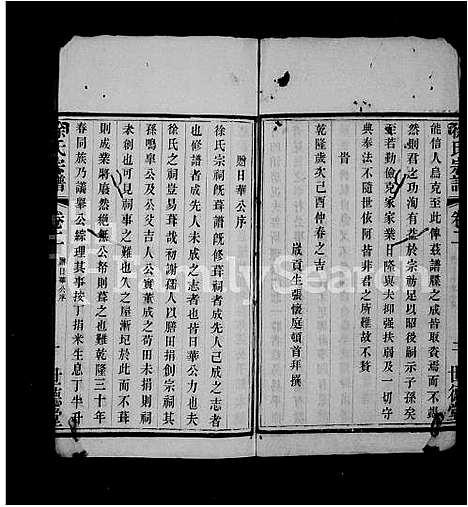 能信人烏克至此俾茲譜牒之成皆取賫焉而不竭
然則君之功洵有益於宗祊足以昭後嗣示子孫矣
至若勤儉克家家業日隆與夫抑強扶弱及一切
典奉法不隨世依阿皆非君之所難故不贅
旹
乾隆歲次己酉仲春之吉
歲貢生張懷庭頓首拜撰
徐氏宗譜
卷二
世德堂
贈日華公序
徐氏宗祠既葺譜既修葺祠者成先人已成之志者
也修譜者成先人未成之志者也皆日華公力也夫
徐氏之祠豈易葺哉初謝孺人以贍田捐創宗祠
孫鳴皋公及公父吉人公實董成之苟田未捐則祠
未創也可見祠事之難也久之屋漸圮於此而不葺
則成業將廢然絕無公帑則葺之也難乾隆三十年
春同族乃議舉公綜理其事按丁捐米生息丁半升
徐氏宗譜
卷二
贈日華公序
一
世德堂
FamilySearch